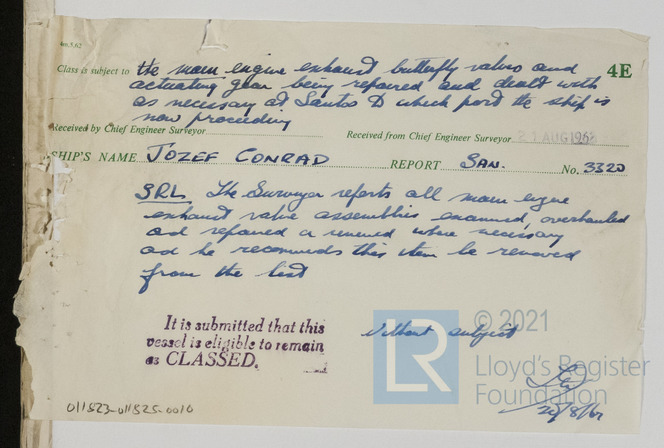 6m.5,62
Class is subject to the main engine exhaust butterfly valves and 4E
actuating gear being repaired and dealt with
as necessary at Santos to which port the ship is
now proceeding
Received by Chief Engineer Surveyor Received from Chief Engineer Surveyor 21 AUG 1962
SHIP'S NAME JOZEF CONRAD REPORT SAN. No. 3320
SRL The Surveyor reports all main engine
exhaust valve assemblies examined, overhauled
and repaired or renewed where necessary
and he recommends this item be removed
from the list
It is submitted that this
vessel is eligible to remain
as CLASSED.
Without subject
20/8/62
011523-011525-0010
LR
© 2021
Lloyd's Register
Foundation